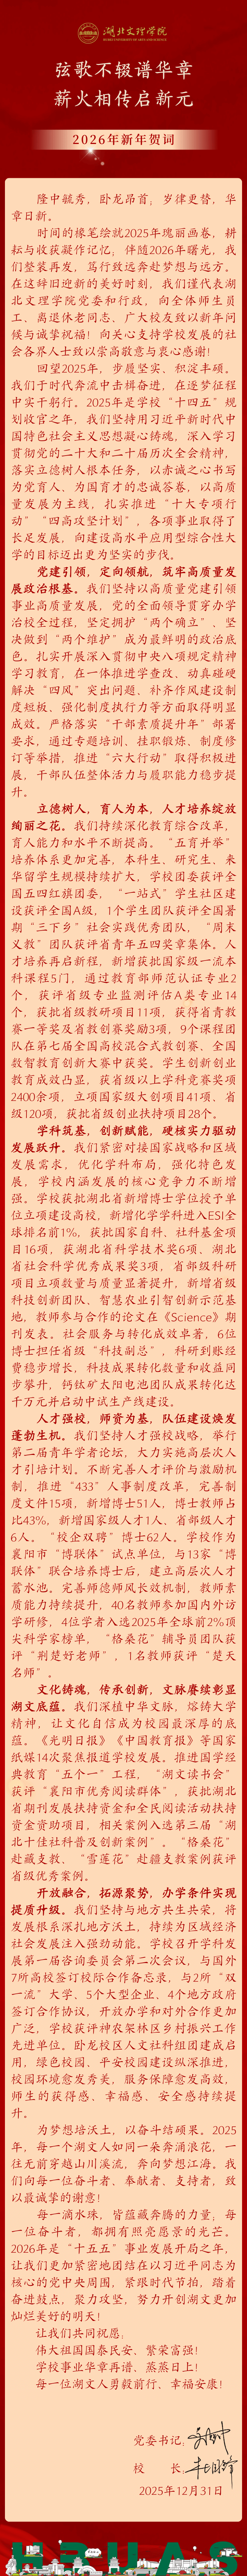 湖北文理学院
HUBEI UNIVERSITY OF ARTS AND SCIENCE
弦歌不辍谱华章
薪火相传启新元
2026年新年贺词
隆中毓秀，卧龙昂首；岁律更替，华
章日新。
时间的椽笔绘就2025年瑰丽画卷，耕
耘与收获凝作记忆；伴随2026年曙光，我
们整装再发，笃行致远奔赴梦想与远方。
在这辞旧迎新的美好时刻，我们谨代表湖
北文理学院党委和行政，向全体师生员
工、离退休老同志、广大校友致以新年问
候与诚挚祝福！向关心支持学校发展的社
会各界人士致以崇高敬意与衷心感谢！
回望2025年，步履坚实、积淀丰硕。
我们于时代奔流中击楫奋进，在逐梦征程
中实干躬行。2025年是学校“十四五”规
划收官之年，我们坚持用习近平新时代中
国特色社会主义思想凝心铸魂，深入学习
贯彻党的二十大和二十届历次全会精神，
落实立德树人根本任务，以赤诚之心书写
为党育人、为国育才的忠诚答卷，以高质
量发展为主线，扎实推进“十大专项行
动”“四高攻坚计划”，各项事业取得了
长足发展，向建设高水平应用型综合性大
学的目标迈出更为坚实的步伐。
党建引领，定向领航，筑牢高质量发
展政治根基。我们坚持以高质量党建引领
事业高质量发展，党的全面领导贯穿办学
治校全过程，坚定拥护“两个确立”、坚
决做到“两个维护”成为最鲜明的政治底
色。扎实开展深入贯彻中央八项规定精神
学习教育，在一体推进学查改、动真碰硬
解决“四风”突出问题、补齐作风建设制
度短板、强化制度执行力等方面取得明显
成效。严格落实“干部素质提升年”部署
要求，通过专题培训、挂职锻炼、制度修
订等举措，推进“六大行动”取得积极进
展，干部队伍整体活力与履职能力稳步提
升。
立德树人，育人为本，人才培养绽放
绚丽之花。我们持续深化教育综合改革，
育人能力和水平不断提高。“五育并举”
培养体系更加完善，本科生、研究生、来
华留学生规模持续扩大，学校团委获评全
国五四红旗团委，“一站式”学生社区建
设获评全国A级，1个学生团队获评全国暑
期“三下乡”社会实践优秀团队，“周末
义教”团队获评省青年五四奖章集体。人
才培养再启新程，新增获批国家级一流本
科课程5门，通过教育部师范认证专业2
个，获评省级专业监测评估A类专业14
个，获批省级教研项目11项，获得省青教
赛一等奖及省教创赛奖励3项，9个课程团
队在第七届全国高校混合式教创赛、全国
数智教育创新大赛中获奖。学生创新创业
教育成效凸显，获省级以上学科竞赛奖项
2400余项，立项国家级大创项目41项、省
级120项，获批省级创业扶持项目28个。
学科筑基，创新赋能，硬核实力驱动
发展跃升。我们紧密对接国家战略和区域
发展需求，优化学科布局，强化特色发
展，学校内涵发展的核心竞争力不断增
强。学校获批湖北省新增博士学位授予单
位立项建设高校，新增化学学科进入ESI全
球排名前1%，获批国家自科、社科基金项
目16项，获湖北省科学技术奖6项、湖北
省社会科学优秀成果奖3项，省部级科研
项目立项数量与质量显著提升，新增省级
科技创新团队、智慧农业引智创新示范基
地，教师参与合作的论文在《Science》期
刊发表。社会服务与转化成效卓著，6位
博士担任省级“科技副总”，科研到账经
费稳步增长，科技成果转化数量和收益同
步攀升，钙钛矿太阳电池团队成果转化达
千万元并启动中试生产线建设。
人才强校，师资为基，队伍建设焕发
蓬勃生机。我们坚持人才强校战略，举行
第二届青年学者论坛，大力实施高层次人
才引培计划。不断完善人才评价与激励机
制，推进“433”人事制度改革，完善制
度文件15项，新增博士51人，博士教师占
比43%，新增国家级人才1人、省部级人才
6人。“校企双聘”博士62人。学校作为
襄阳市“博联体”试点单位，与13家“博
联体”联合培养博士后，建立高层次人才
蓄水池。完善师德师风长效机制，教师素
质能力持续提升，40名教师参加国内外访
学研修，4位学者入选2025年全球前2%顶
尖科学家榜单，“格桑花”辅导员团队获
评“荆楚好老师”，1名教师获评“楚天
名师”。
文化铸魂，传承创新，文脉赓续彰显
湖文底蕴。我们深植中华文脉，熔铸大学
精神，让文化自信成为校园最深厚的底
蕴。《光明日报》《中国教育报》等国家
纸媒14次聚焦报道学校发展。推进国学经
典教育“五个一”工程，“湖文读书会”
获评“襄阳市优秀阅读群体”，获批湖北
省期刊发展扶持资金和全民阅读活动扶持
资金资助项目，相关案例入选第三届“湖
北十佳社科普及创新案例”。“格桑花”
赴藏支教、“雪莲花”赴疆支教案例获评
省级优秀案例。
开放融合，拓源聚势，办学条件实现
提质升级。我们坚持与地方共生共荣，将
发展根系深扎地方沃土，持续为区域经济
社会发展注入强劲动能。学校召开学科发
展第一届咨询委员会第二次会议，与国外
7所高校签订校际合作备忘录，与2所“双
一流”大学、5个大型企业、4个地方政府
签订合作协议，开放办学和对外合作更加
广泛，学校获评神农架林区乡村振兴工作
先进单位。卧龙校区人文社科组团建成启
用，绿色校园、平安校园建设纵深推进，
校园环境愈发秀美，服务保障愈发高效，
师生的获得感、幸福感、安全感持续提
升。
为梦想培沃土，以奋斗结硕果。2025
年，每一个湖文人如同一朵奔涌浪花，一
往无前穿越山川溪流，奔向梦想江海。我
们向每一位奋斗者、奉献者、支持者，致
以最诚挚的谢意！
每一滴水珠，皆蕴藏奔腾的力量；每
一位奋斗者，都拥有照亮愿景的光芒。
2026年是“十五五”事业发展开局之年，
让我们更加紧密地团结在以习近平同志为
核心的党中央周围，紧跟时代节拍，踏着
奋进鼓点，聚力攻坚，努力开创湖文更加
灿烂美好的明天！
让我们共同祝愿：
伟大祖国国泰民安、繁荣富强！
学校事业华章再谱、蒸蒸日上！
每一位湖文人勇毅前行、幸福安康！
党委书记：
校　　长：
2025年12月31日
HBUAS